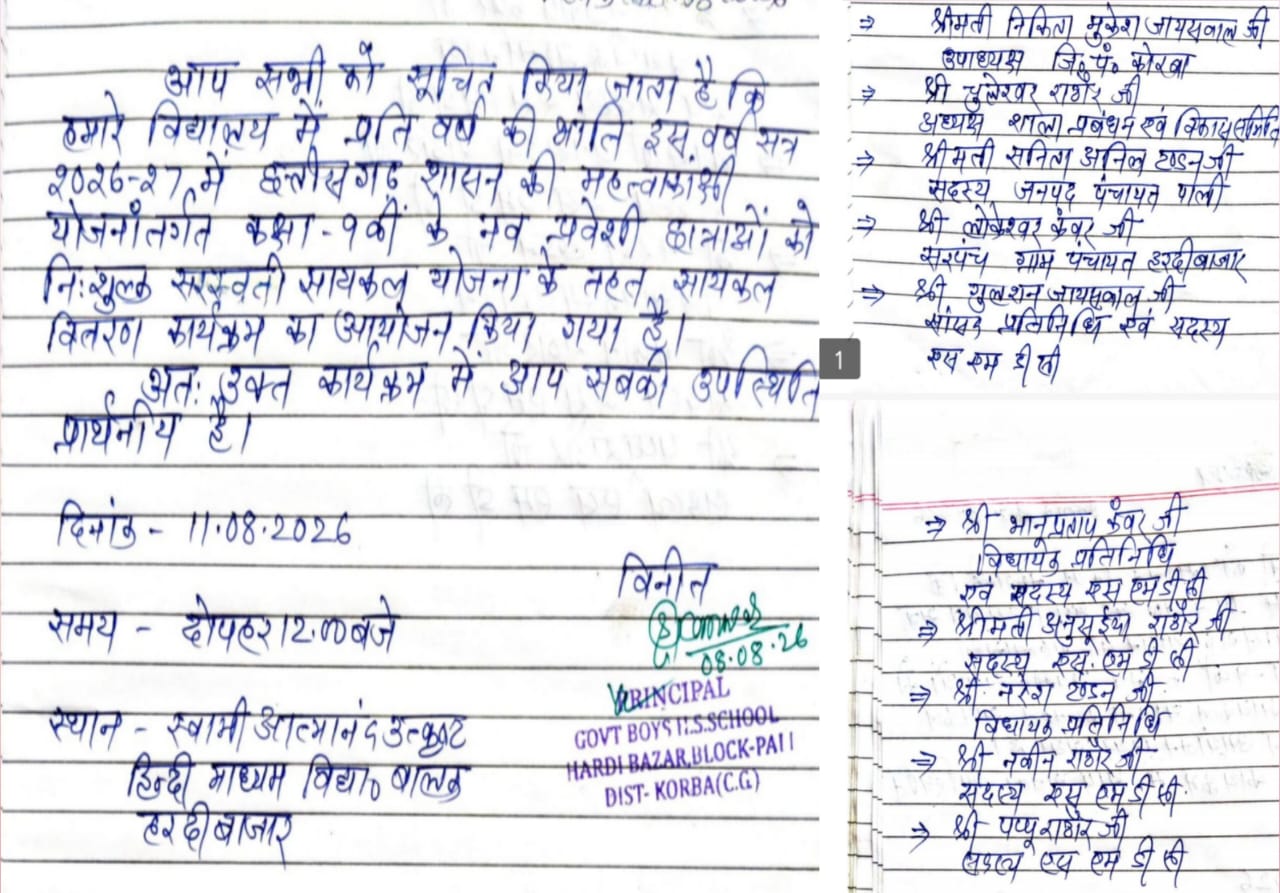 आप सभी को सूचित किया जाता है कि
हमारे विद्यालय में प्रति वर्ष की भांति इस वर्ष सत्र
२०२६-२७ में छत्तीसगढ़ शासन की महत्वाकांक्षी
योजनांतर्गत कक्षा - ९वीं के नव प्रवेशी छात्राओं को
निःशुल्क सरस्वती सायकल योजना के तहत सायकल
वितरण कार्यक्रम का आयोजन किया गया है।
अतः उक्त कार्यक्रम में आप सबकी उपस्थिति
प्रार्थनीय है।
दिनांक - 11.08.2026
समय - दोपहर 12.00 बजे
स्थान - स्वामी आत्मानंद उत्कृष्ट
हिन्दी माध्यम विद्या० बालक
हरदीबाजार
विनीत
08.08.26
PRINCIPAL
GOVT BOYS H.S.SCHOOL
HARDI BAZAR, BLOCK-PALI
DIST- KORBA(C.G)
⇒ श्रीमती निकिता मुकेश जायसवाल जी
उपाध्यक्ष जि० पं० कोरबा
⇒ श्री चुलेश्वर राठौर जी
अध्यक्ष शाला प्रबंधन एवं विकास समिति
⇒ श्रीमती सनिता अनिल टण्डन जी
सदस्य जनपद पंचायत पाली
⇒ श्री लोकेश्वर कंवर जी
सरपंच ग्राम पंचायत हरदीबाजार
⇒ श्री गुलशन जायसवाल जी
सांसद प्रतिनिधि एवं सदस्य
एस एम डी सी
1
⇒ श्री भानूप्रताप कंवर जी
विधायक प्रतिनिधि
एवं सदस्य एस एम डी सी
⇒ श्रीमती अनुसूईया राठौर जी
सदस्य एस. एम डी सी
⇒ श्री नरेश टण्डन जी
विधायक प्रतिनिधि
⇒ श्री नवीन राठौर जी
सदस्य एस एम डी सी
⇒ श्री पप्पू राठौर जी
सदस्य एस एम डी सी